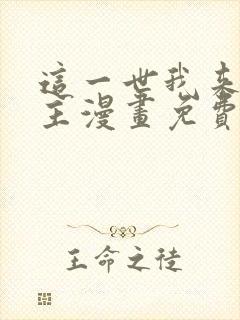 這一世我來
主漫畫免費
王命之徒